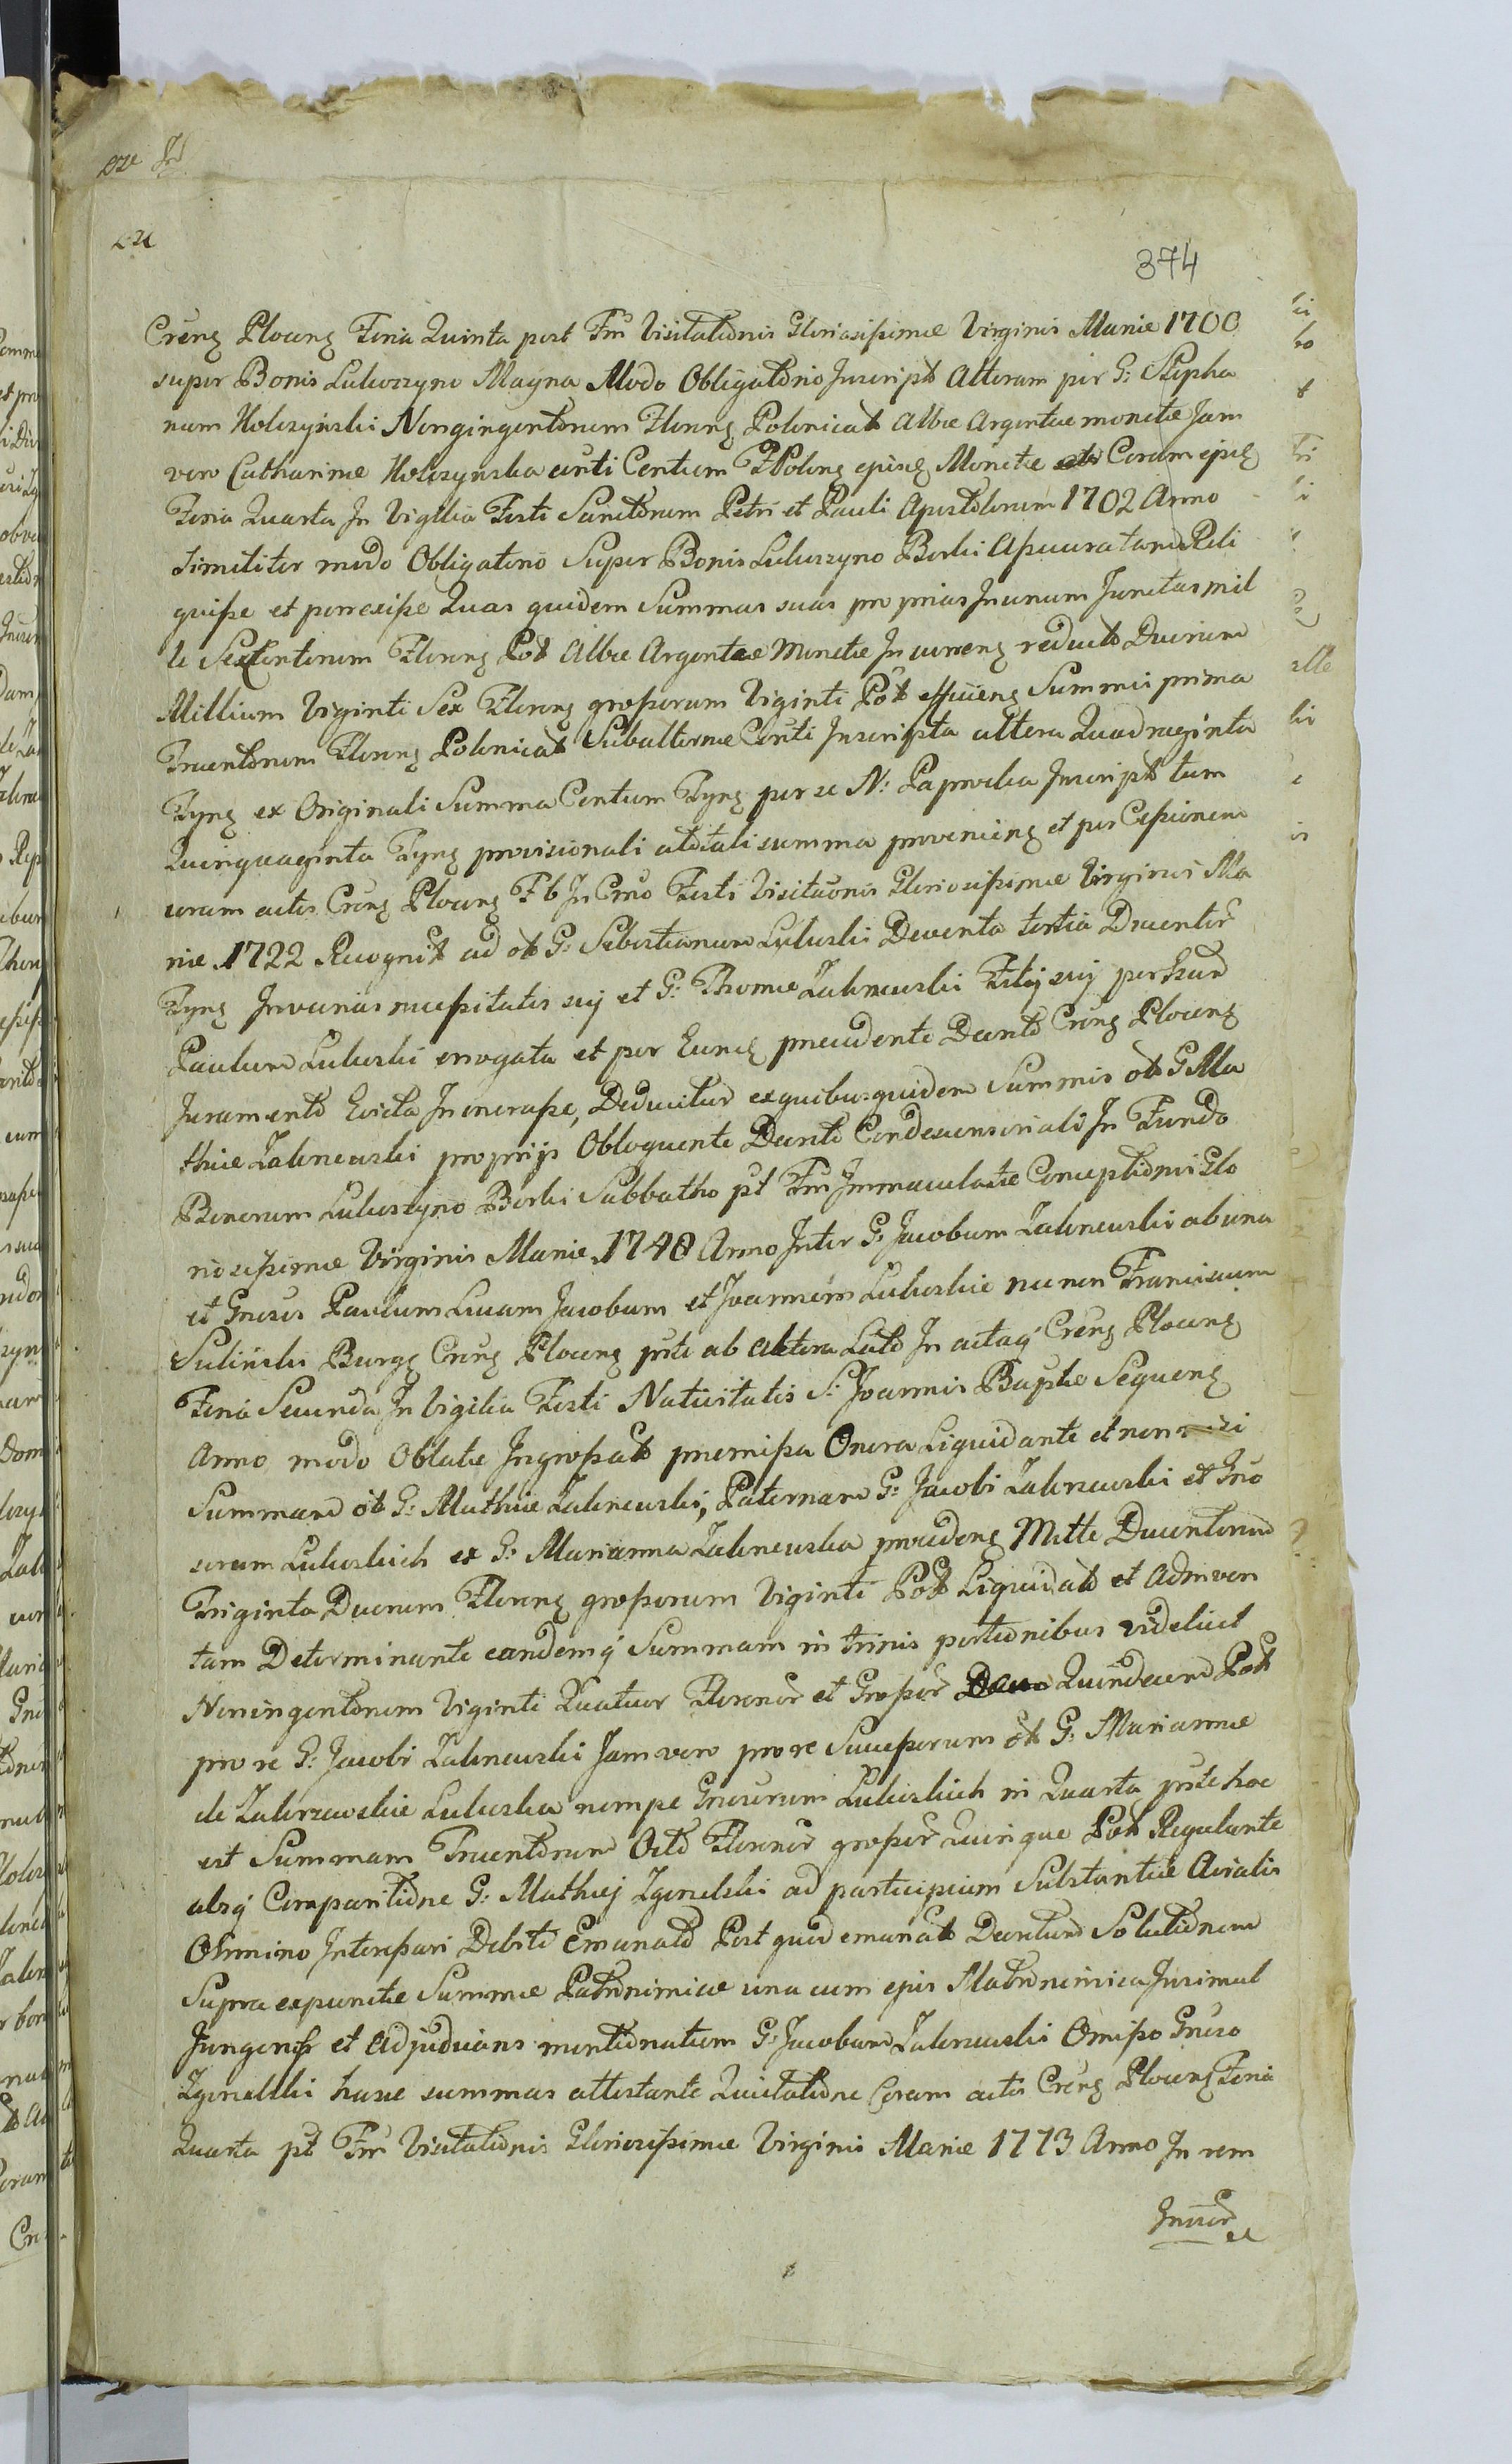 374
Creng Ploceng Feria Quinta post Fm Visitationis Gloriosissimæ Virginis Mariæ 1700
super Bonis Luberzyno Magna Modo Obligatorio Inscript Alteram per G: Stepha
num Holczynski Nongingentorum Floreng Polonical Albæ Argenteæ monetæ Jam
vero Catharinæ Holczynska centi Centum FPoloneg ejusq Monetæ Coram ejusq
Feria Quarta In Vigilia Festi Sanctorum Petri et Pauli Apostolorum 1702 Anno
similiter modo Obligatorio Super Bonis Luberzyno Borki Reli
quisse et porrexisse Quas quidem Summas suas proprias In unum Junctas mil
le Sexcentorum Floreng Pol Albæ Argenteæ Monetæ In curreng reduct Duorum
Millium Viginti Sex Floreng grossorum Viginti Pol efficieng Summis prima
Trucentorum Floreng Polonical Subalternæ Centi Inscripta altera Quadraginta
Fyng ex Originali Summa Centum Fyng per se N: Paprocka Inscript tum
Quinquaginta Fyng provisionali a tali summa provenieng et per Cessionem
coram actis Creng Ploceng Fb In Crno Festi Visitaonis Gloriosissimæ Virginis Ma
riæ 1722 Recognit ad ol G: Sebastianum Luberski Deventa tertia Ducentor
Fyng In varias necessitates suj et G: Thomæ Zakrzewski Filij suj per Gsum
Paulum Luberski errogata et per Eunq præcedente Decreto Creng Ploceng
Juramento Evicta In onerasse, Deducitur ex quibus quidem Summis ol G Ma
thiæ Zakrzewski proprijs Obloquente Decreto Condescensoriali In Fundo
Bonorum Luberzyno Borki Sabbatho pt Fm Immaculatæ Conceptionis Glo
riosissimæ Virginis Mariæ 1748 Anno Inter G: Jacobum Zakrzewski ab una
et Gnosos Paulum Lucam Jacobum et Joannem Luberskie nec non Franciscum
Suliński Burg Creng Ploceng prte ab altera Lato In actaq Creng Ploceng
Feria Secunda In Vigilia Festi Nativitatis S: Joannis Baptæ Sequeng
Anno modo Oblatæ Ingrossat præmissa Onera Liquidante et non nisi
Summam ol G: Mathiæ Zakrzewski, Paternam G: Jacobi Zakrzewski et Gno
sorum Luberskich ex G: Marianna Zakrzewska procedeng Mille Ducentorum
Triginta Duorum Floreng grossorum Viginti Pol Liquidat et Adinven
tam Determinante eandemq Summam in trinis portionibus videlicet
Noningentorum Viginti Quatuor Florenor et Grossor Quindecim Pol
pro re G: Jacobi Zakrzewski Jam vero pro re Successorum ol G: Mariannæ
de Zakrzewskie Luberska nempe Gnosorum Luberskich in Quarta prte hoc
est Summam Trucentorum Octo Florenor grossor Quinque Pol Regulante
absq Comparitione G: Mathiej Zgorzelski ad participium Substantiæ Avialis
Ohmino Interessari Debiti Emanato Post quod emanat Decretum Solutionem
Supra expunctæ Summæ Patrimonicæ una cum ejus Matrimonica Insimul
Jungens et Adjudicans mentionatum G: Jacobum Zakrzewski Omisso Gnoso
Zgorzelski hasce summas attestante Quietatione Coram actis Creng Ploceng Feria
Quarta pt Fm Visitationis Gloriosissimæ Virginis Mariæ 1773 Anno In rem